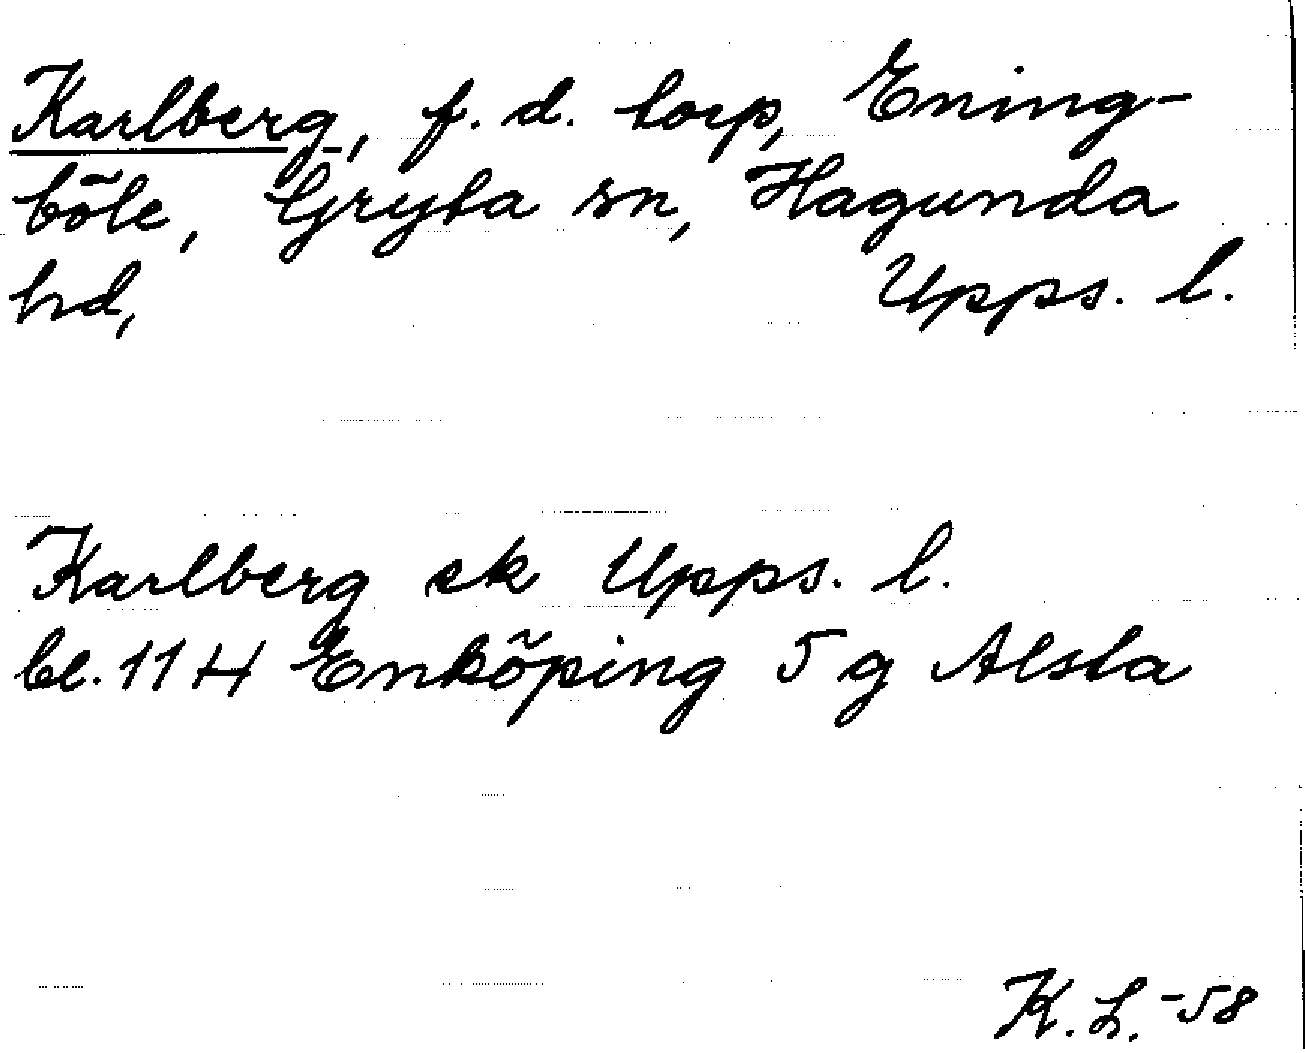 Karlberg, f. d. torp, Ening-
böle, Gryta sn, Hagunda
hd, Upps. l.
Karlberg ek Upps. l.
bl. 11 H Enköping 5 g Alsta
K. L. -58